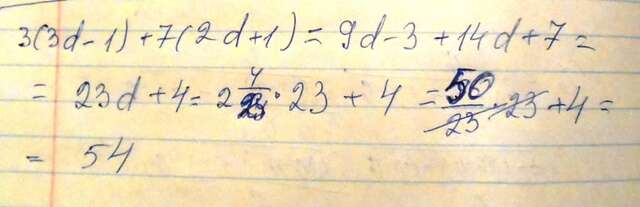 3(3d-1)+7(2d+1)=9d-3+14d+7=
=23d+4=2 4/23·23+4=50/23·23+4=
=54